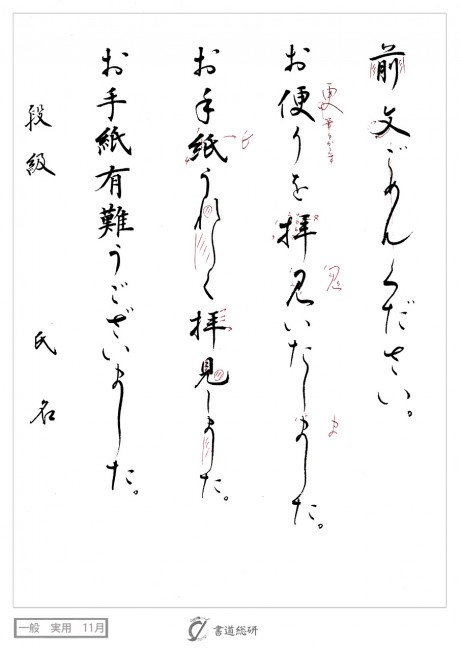 前文ごめんください。
お便りを拝見いたしました。
お手紙うれしく拝見しました。
お手紙有難うございました。
段級 氏名
一般 実用 11月
書道総研